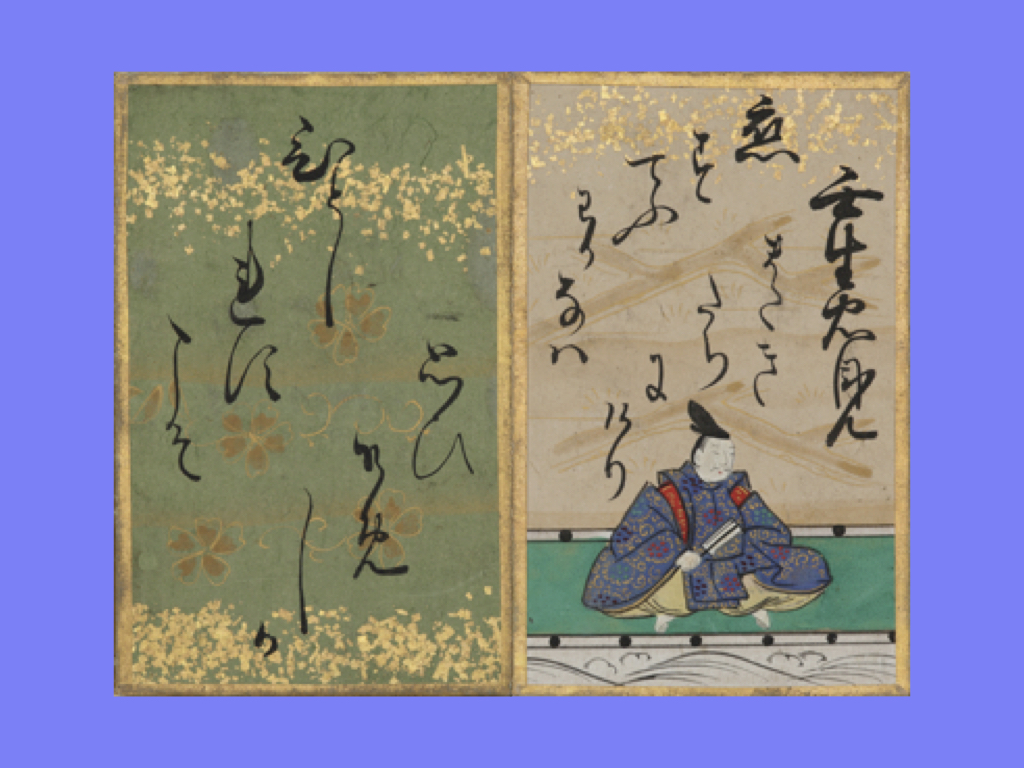 壬生忠見
恋
す
てふ
わか
なは
またき
たち
に
けり
ひとし
れす
こそ
思ひ
そめ
し
か